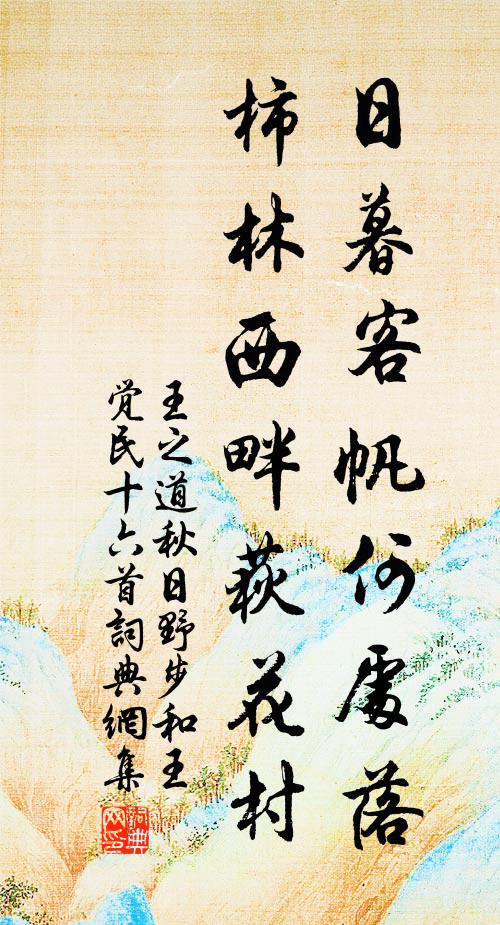 日暮客帆何處落
柿林西畔荻花村
王之道秋日野步和王
覚民十六首詞典網集
詞典
网印